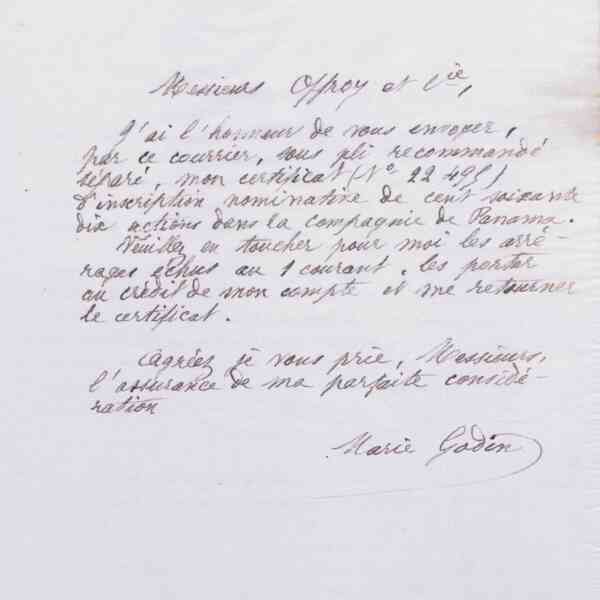 Messieurs Offroy et Cie,
J'ai l'honneur de vous envoyer,
par ce courrier, sous pli recommandé
séparé, mon certificat (No 22 495)
d'inscription nominative de cent soixante
dix actions dans la compagnie de Panama.
Veuillez en toucher pour moi les arré-
rages échus au 1 courant, les porter
au crédit de mon compte et me retourner
le certificat.
Agréez je vous prie, Messieurs,
l'assurance de ma parfaite considé-
ration
Marie Godin